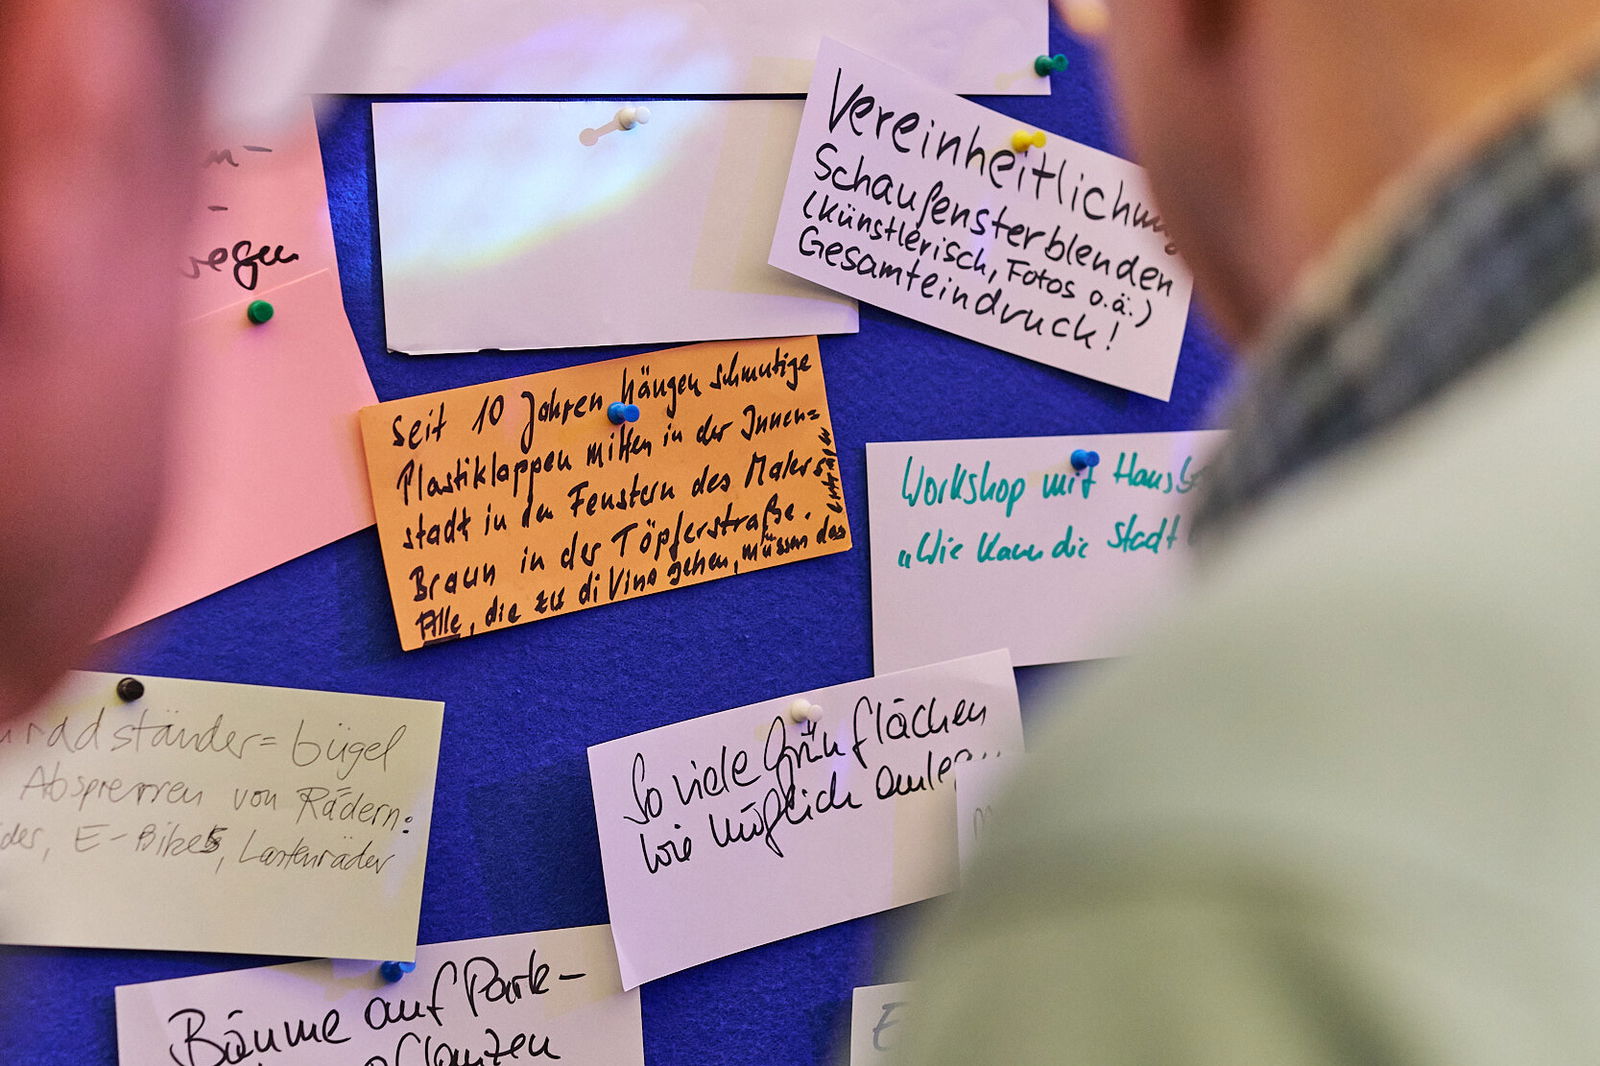 Vereinheitlichung
Schaufensterblenden
(künstlerisch, Fotos o.ä.)
Gesamteindruck!
wegen
Seit 10 Jahren hängen schmutzige
Plastiklappen mitten in der Innen=
stadt in den Fenstern des Malers
Braun in der Töpferstraße.
Alle, die zu di Vino gehen, müssen das
ertragen
Workshop mit Hans
„Wie kann die Stadt
radständer=bügel
Absperren von Rädern:
E-Bikes, Lastenräder
So viele Grünflächen
wie möglich
Bäume auf Park-
pflanzen
E